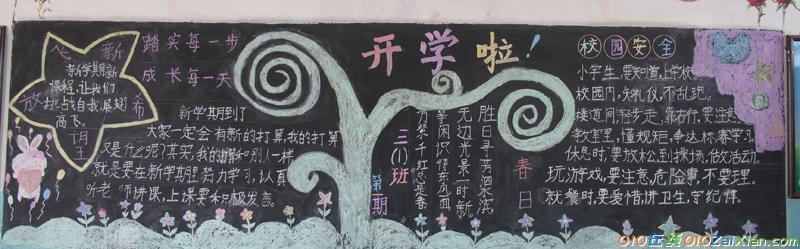 放飞新希望
新学期新
课程,让我们
挑战自我展翅
高飞。
踏实每一步
成长每一天
新学期到了
大家一定会有新的打算,我的打算
又是什么呢?其实,我的和别人一样
就是要在新学期里努力学习,认真
听老师讲课,上课要积极发言。
开学啦!
三(1)班
第 期
春日
胜日寻芳泗水滨
无边光景一时新
等闲识得东风面
万紫千红总是春
校园安全
小学生,要知道,上学校
校园内,知礼仪,不乱跑。
楼道间,轻步走,靠右行,要注意
教室里,懂规矩,争达标,赛学习
休息时,要放松,到操场,做活动。
玩游戏,要注意,危险事,不要理。
就餐时,要爱惜,讲卫生,守纪律。
010在线010ZaiXian.com